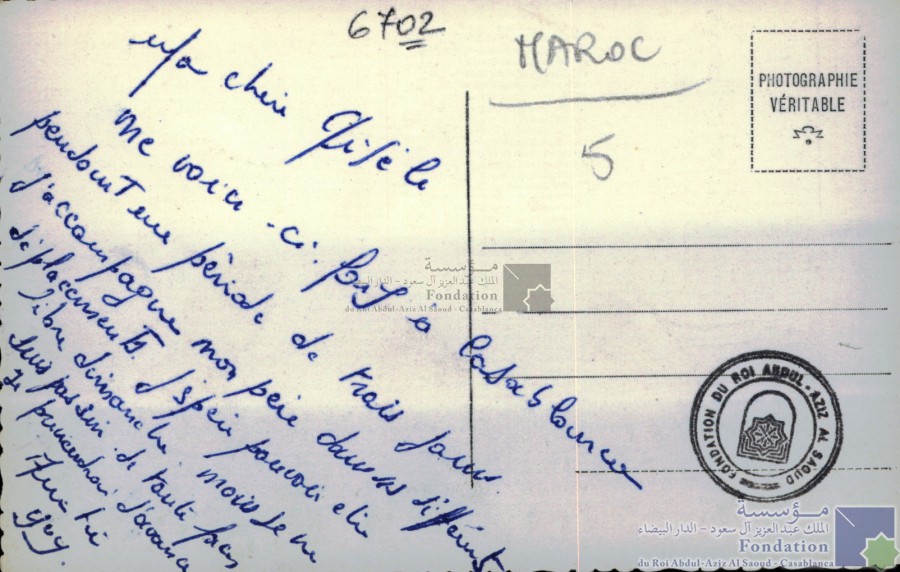 6702
MAROC
5
PHOTOGRAPHIE
VÉRITABLE
Ma cheri Gisèle
me voici - ci fois a Casablanca
pendant une période de trois jours.
J'accompagne mon père dans ses différents
déplacements. J'espère pouvoir être
libre dimanche mais je ne
suis pas sûr. de toute façon
je préviendrai d'avance
Guy.
مؤسسة
الملك عبد العزيز آل سعود - الدار البيضاء
Fondation
du Roi Abdul-Aziz Al Saoud - Casablanca
FONDATION DU ROI ABDUL-AZIZ AL SAOUD
مؤسسة
الملك عبد العزيز آل سعود - الدار البيضاء
Fondation
du Roi Abdul-Aziz Al Saoud - Casablanca